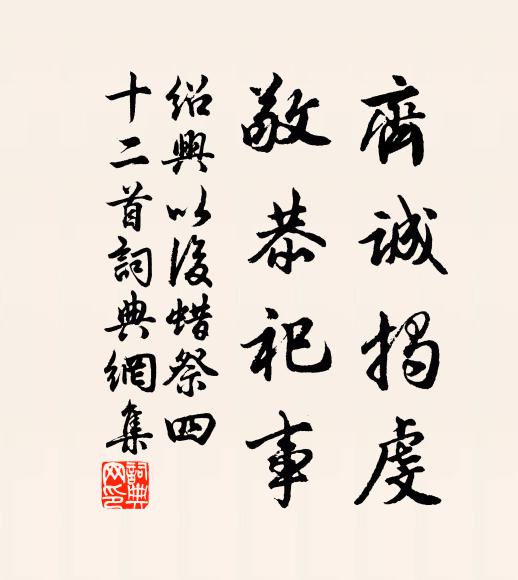 齊誠揭虔
敬恭祀事
紹興以後蜡祭四
十二首詞典網集
詞典
网印